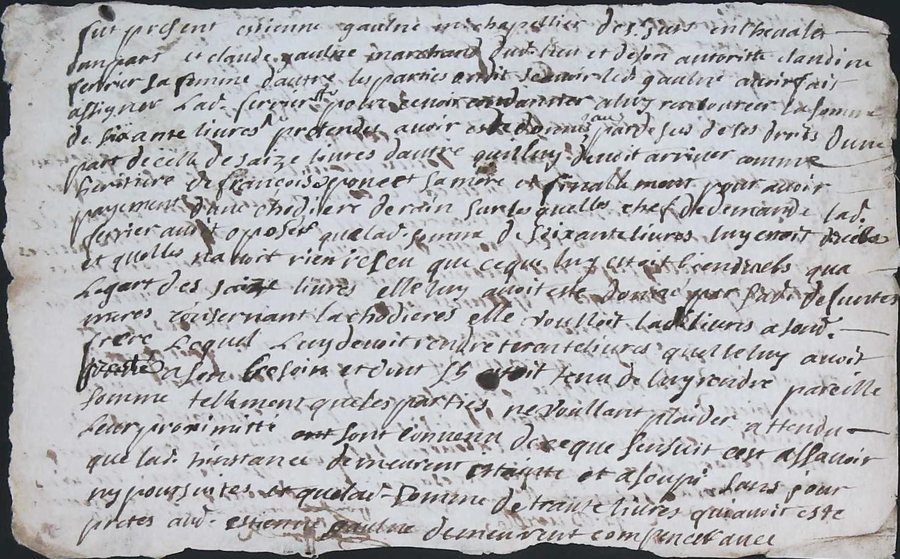 fut présent estienne gaulne mre chapellier des. just en chevalet
danpart et claude gaulne marchand dud. lieu et de son autoritte claudine
ferrier sa femme dautre les parties ont dit scavoir led. gaulne avoir fait
assigner lad. ferrier pour se voir condamner a luy rembourcer la somme
de soixante livres pretendus avoir este donne au par desus de ses droits dune
part de celle de saize livres dautre quil luy devoit arriver comme
heritiere de françois ponet sa mere et finallement pour avoir
payement dune chodiere derain sur lesquelles chef de demande lad.
ferrier auroit oposes que lad. somme de soixante livres luy
et quelle na fait rien reseu que ce que luy estoit
legart des saize livres elle luy avoit este donne par lad. defuntes
mere consernant la chodieres elle voulloit lad. livres a sond.
frere lequel luy devoit rendre trente livres quelle luy avoit
preste a son besoin et dont il estoit tenu de luy rendre pareille
somme tellement que les parties ne voullant plaider attendu
leur proximitté sont convenu de ce que sensuit cest assavoir
que lad. instance demeurera estainte et asoupi sans pour
ny poursuites et que lad. somme de trante livres qui avoit este
pretes aud. estienne gaulne demeurent compencer avec